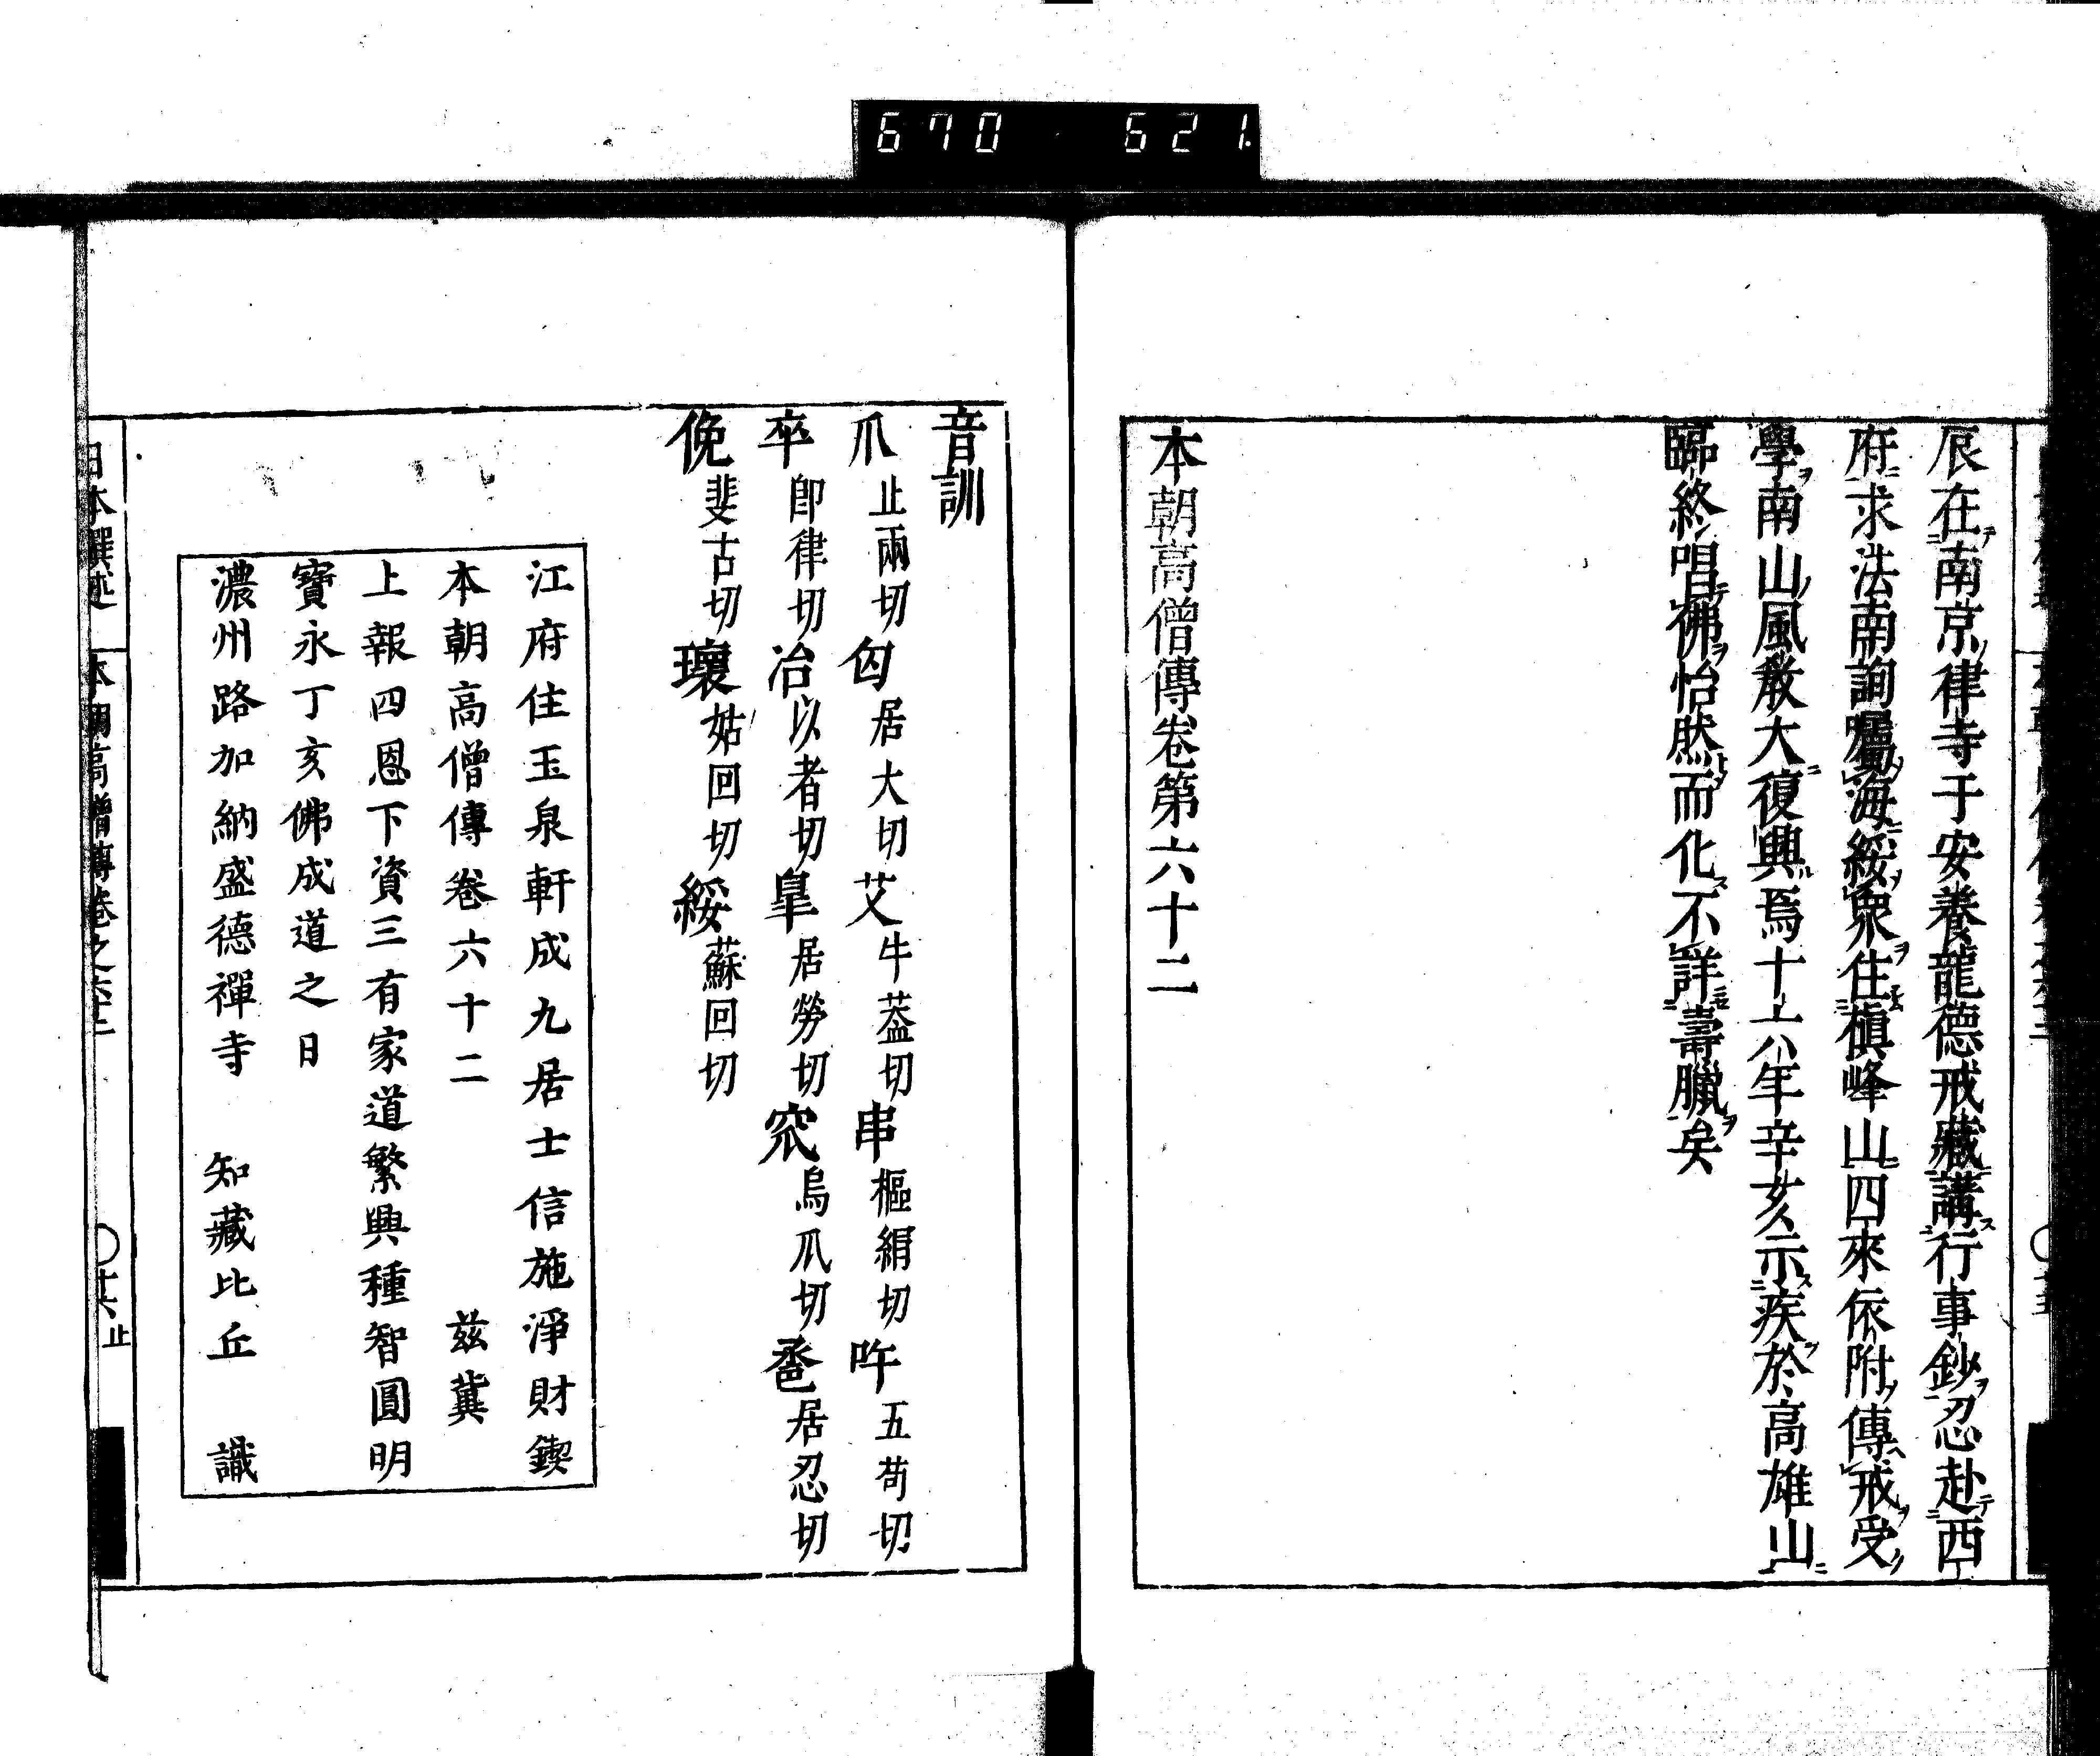 670 621.
辰在南京律寺于安養龍德戒藏講行事鈔忍赴西
府求法南詢囑海綏衆住槇峰山四來依附傳戒受
學南山風教大復興焉十六年辛亥示疾於高雄山
臨終唱佛怡然而化不詳壽臘矣
本朝高僧傳卷第六十二
音訓
爪 止兩切 匃 居大切 艾 牛葢切 串 樞絹切 吘 五苟切
卒 卽律切 冶 以者切 皐 居勞切 窊 烏爪切 巹 居忍切
俛 斐古切 瓌 姑回切 綏 蘇回切
江府住玉泉軒成九居士信施淨財鍥
本朝高僧傳卷六十二 兹冀
上報四恩下資三有家道繁興種智圓明
寶永丁亥佛成道之日
濃州路加納盛德禪寺 知藏比丘 識
日本撰述 本朝高僧傳卷之六十二 十六 止